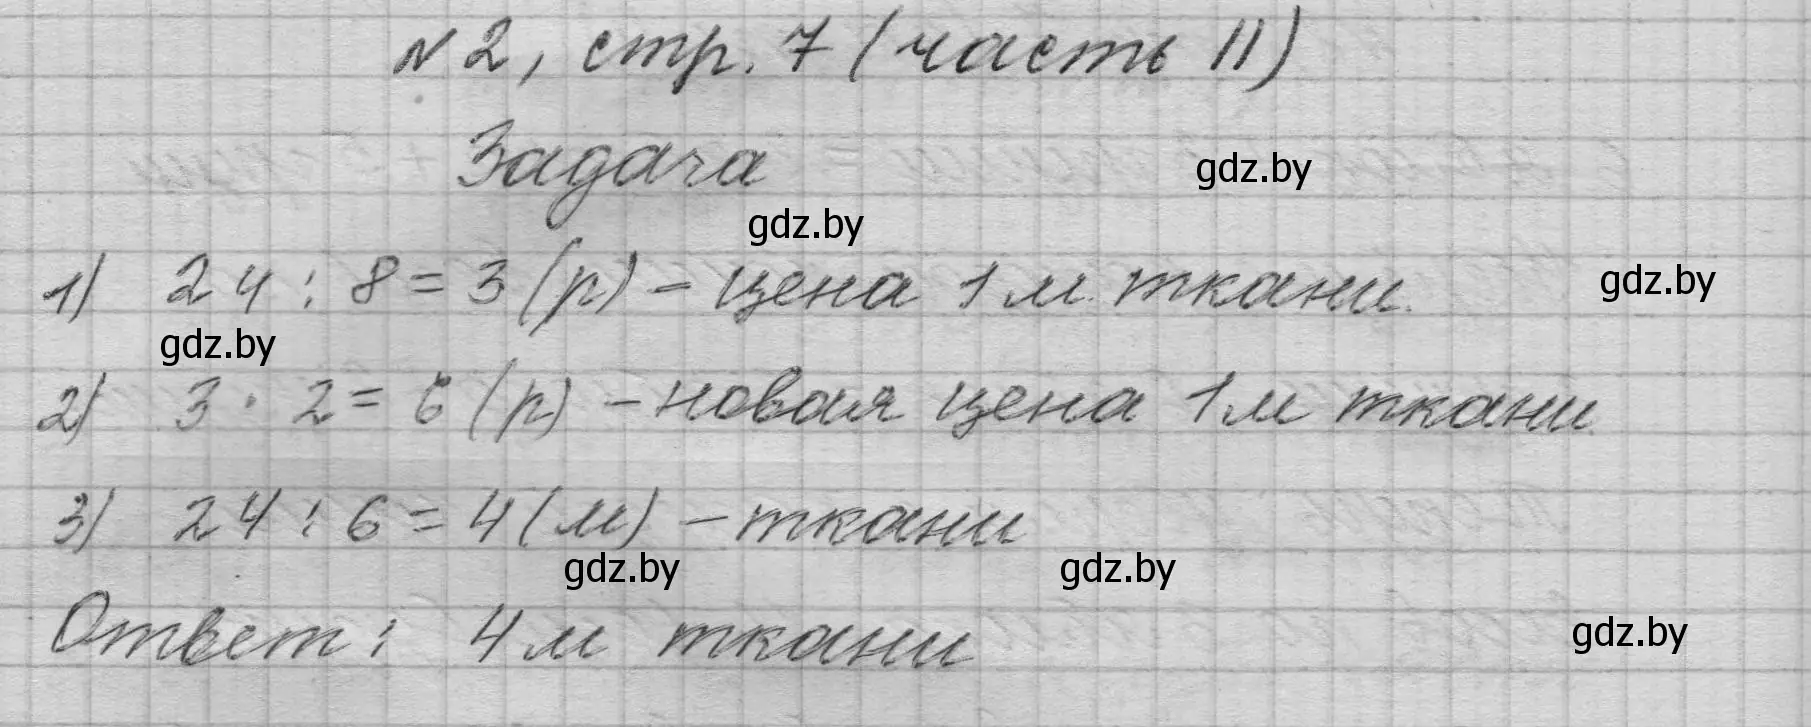 №2, стр. 7 (часть II)
Задача
gdz.by
gdz.by
1) 24 : 8 = 3 (р) – цена 1 м. ткани.
gdz.by
gdz.by
2) 3 · 2 = 6 (р) – новая цена 1 м ткани
3) 24 : 6 = 4 (м) – ткани
gdz.by
gdz.by
Ответ: 4 м ткани
gdz.by